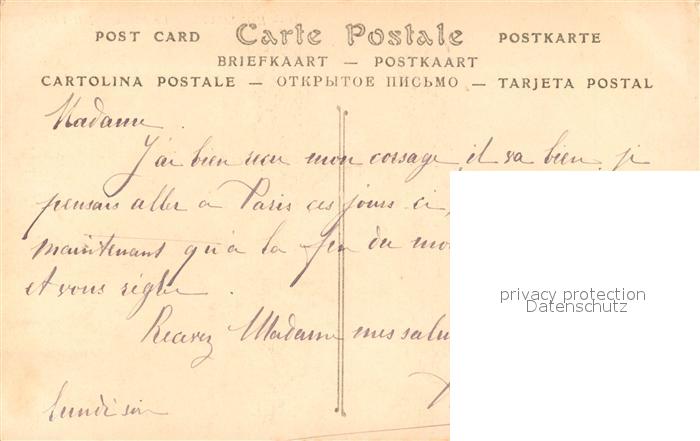 POST CARD Carte Postale POSTKARTE
BRIEFKAART — POSTKAART
CARTOLINA POSTALE — ОТКРЫТОЕ ПИСЬМО — TARJETA POSTAL
Madame.
J'ai bien recu mon corsage, il va bien, je
pensais aller à Paris ces jours ci,
maintenant qu'à la fin du mo
et vous régler.
Recevez Madame mes salu
Lundi soir
privacy protection
Datenschutz